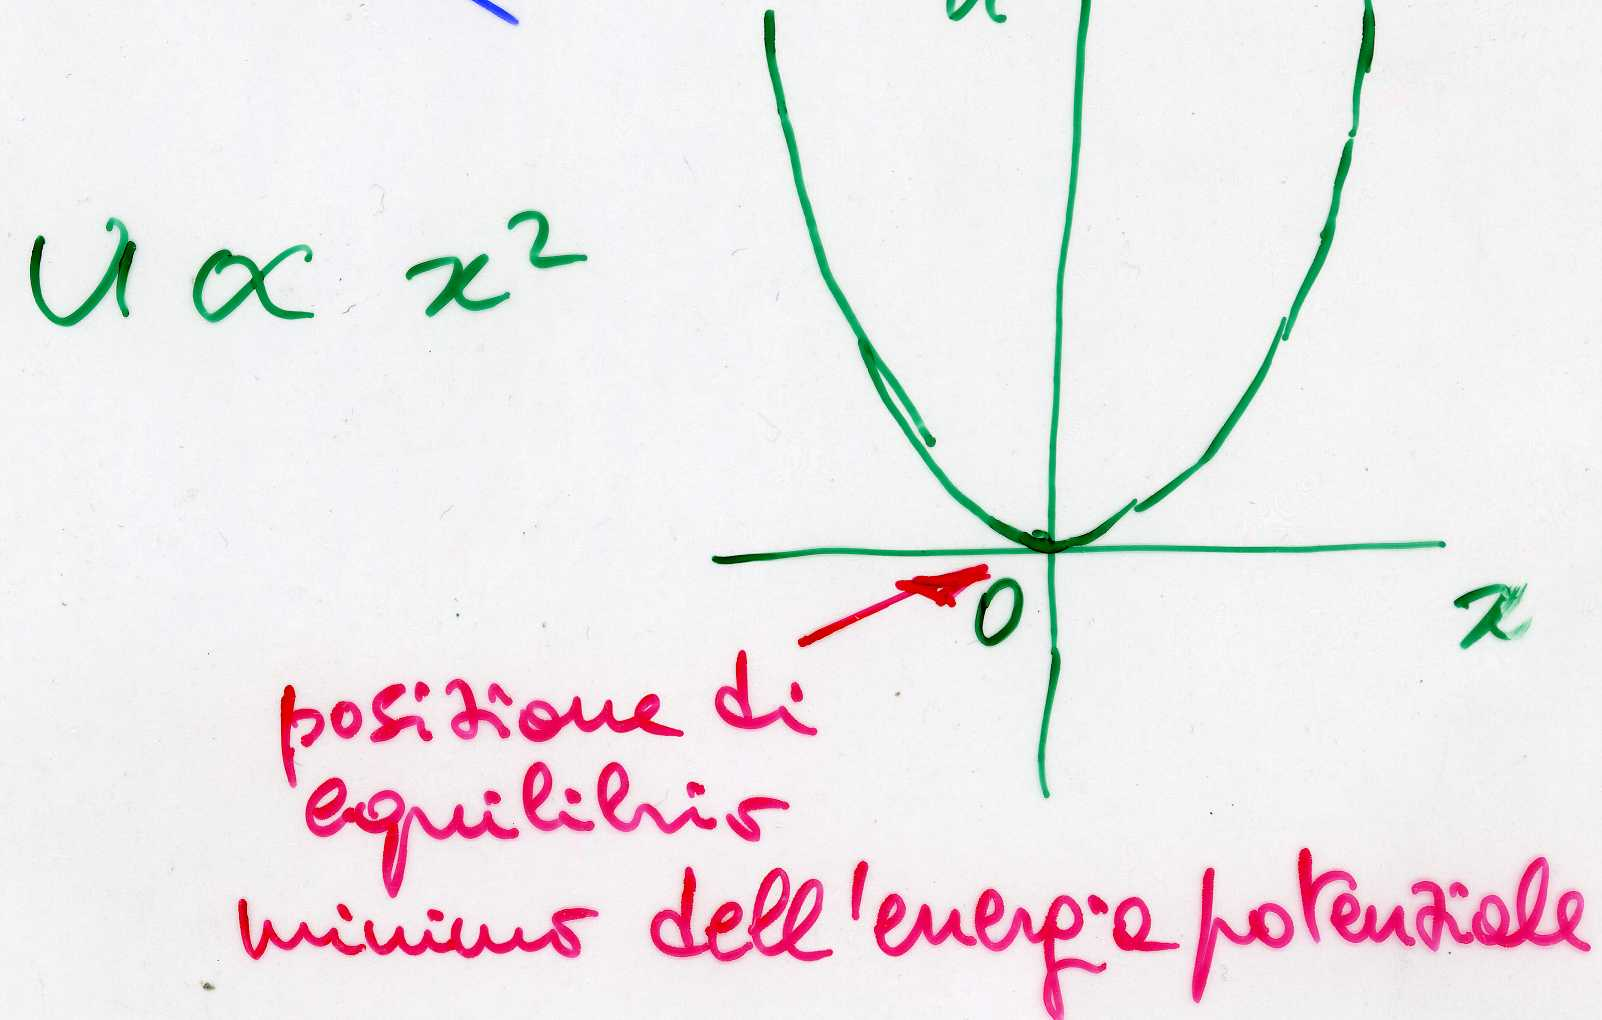 U ∝ x²
0
x
posizione di
equilibrio
minimo dell'energia potenziale